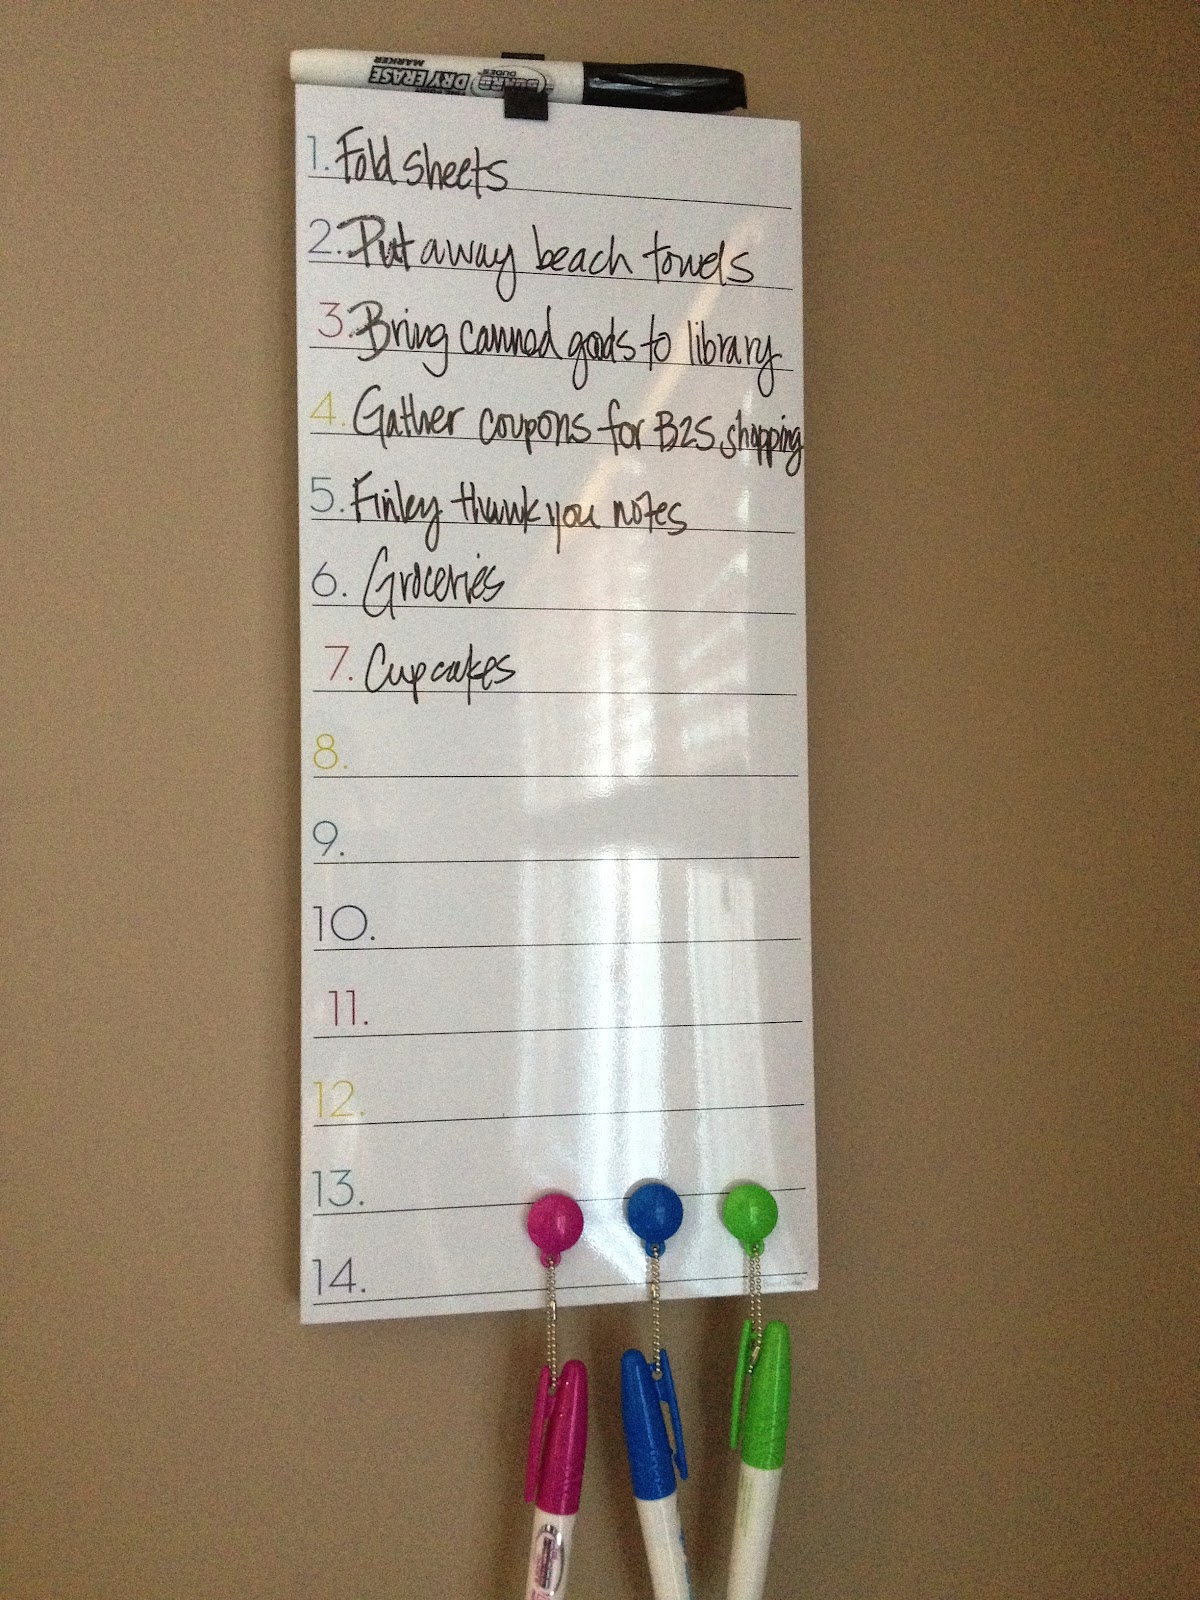 BOARD DUDES
DRY ERASE
MARKER
1. Fold sheets
2. Put away beach towels
3. Bring canned goods to library
4. Gather coupons for B2S shopping
5. Finley thank you notes
6. Groceries
7. Cupcakes
8.
9.
10.
11.
12.
13.
14.